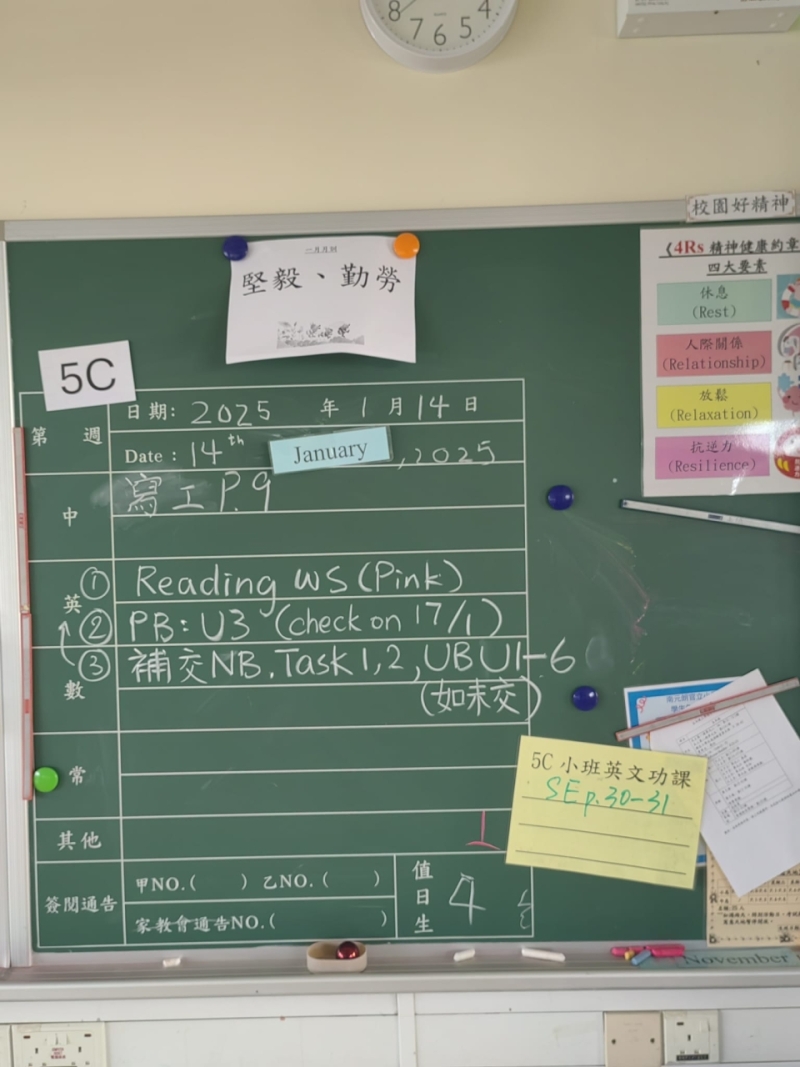 8 7 6 5 4
校園好精神
一月月訓
堅毅、勤勞
《4Rs 精神健康約章
四大要素
休息
(Rest)
人際關係
(Relationship)
放鬆
(Relaxation)
抗逆力
(Resilience)
5C
第 週
日期: 2025 年 1 月 14 日
Date : 14th January , 2025
中
寫工 P.9
英
① Reading WS (Pink)
② PB: U3 (check on 17/1)
數
③ 補交NB.Task 1,2, UB U1-6
(如未交)
常
其他
5C 小班英文功課
SE p.30-31
簽閱通告
甲NO.( ) 乙NO.( )
家教會通告NO.( )
值日生
4
November